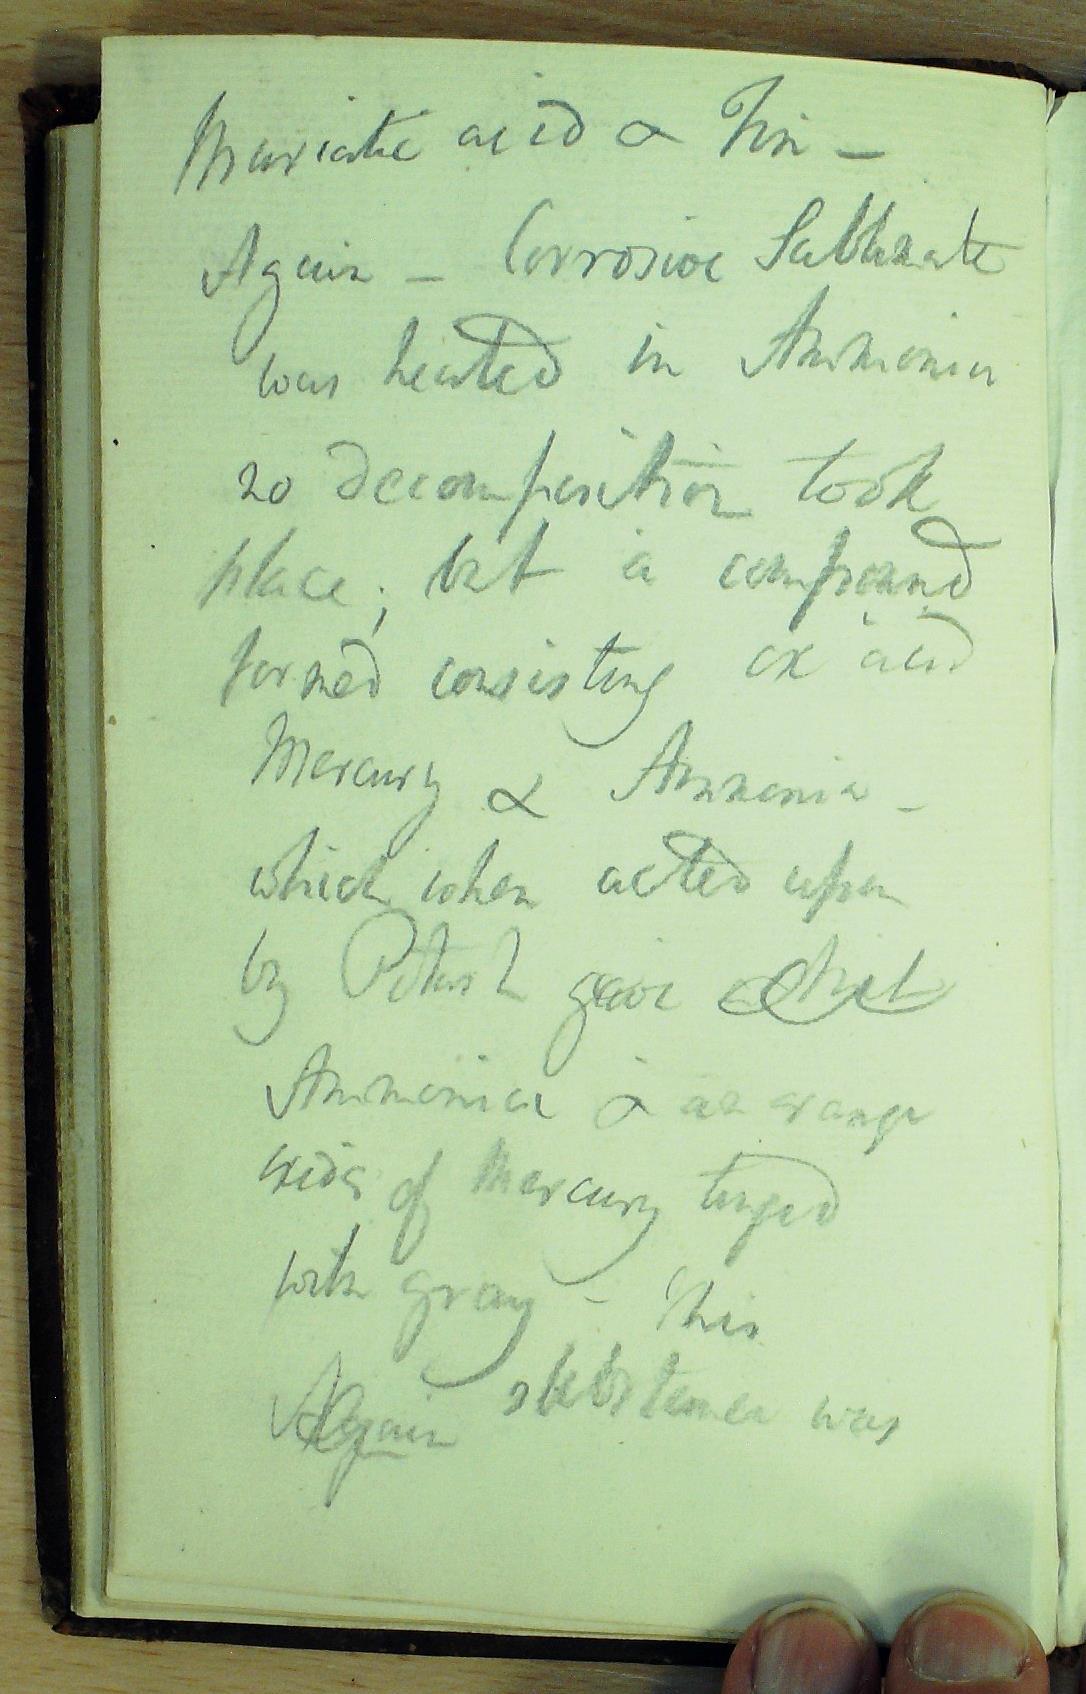 Muriatic acid & Tin -
Again - Corrosive Sublimate
was heated in Ammonia
no decomposition took
place; but a compound
formed consisting ox acid
Mercury & Ammonia -
which when acted upon
by Potash gave
Ammonia & an orange
oxide of Mercury tinged
with gray - This
Again substance was